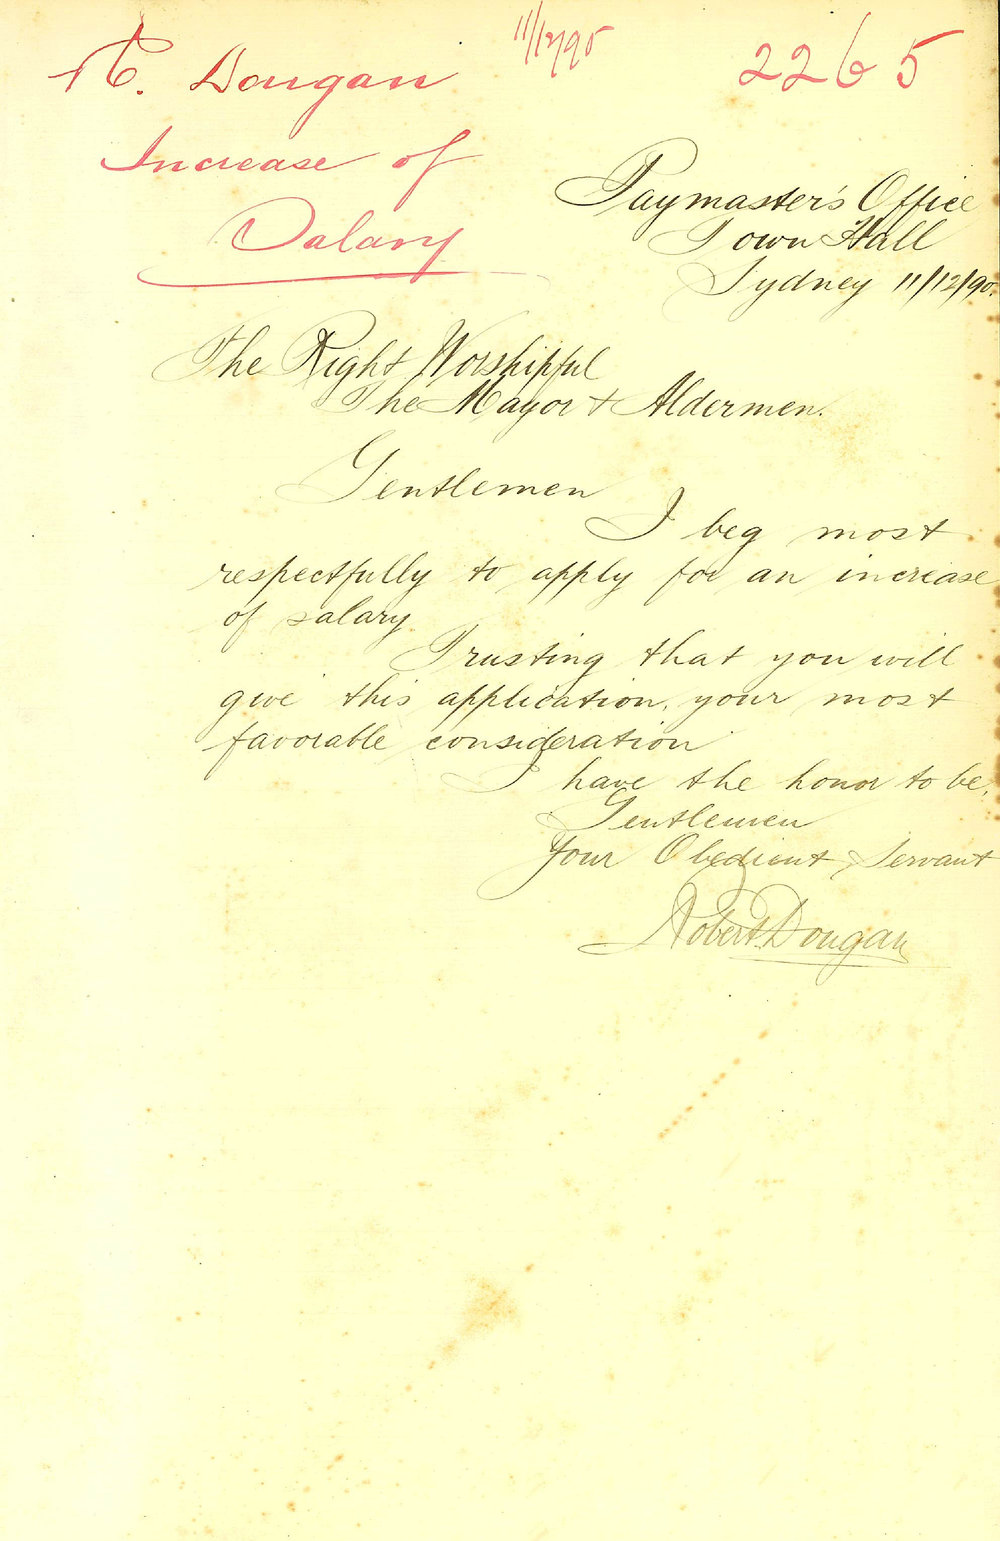 11/12/90
2265
R. Dougan
Increase of
Salary
Paymaster's Office
Town Hall
Sydney 11/12/90.
The Right Worshipful
The Mayor & Aldermen.
Gentlemen
I beg most
respectfully to apply for an increase
of salary.
Trusting that you will
give this application, your most
favorable consideration
I have the honor to be,
Gentlemen
Your Obedient Servant
Robert Dougan